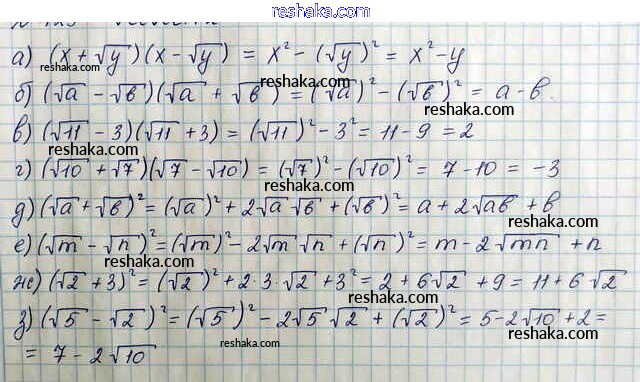 reshaka.com
а) (x + √y)(x - √y) = x² - (√y)² = x² - y
reshaka.com
б) (√a - √b)(√a + √b) = (√a)² - (√b)² = a - b.
reshaka.com
в) (√11 - 3)(√11 + 3) = (√11)² - 3² = 11 - 9 = 2
reshaka.com
г) (√10 + √7)(√7 - √10) = (√7)² - (√10)² = 7 - 10 = -3
reshaka.com
д) (√a + √b)² = (√a)² + 2√a √b + (√b)² = a + 2√ab + b
reshaka.com
е) (√m - √n)² = (√m)² - 2√m √n + (√n)² = m - 2√mn + n
reshaka.com
ж) (√2 + 3)² = (√2)² + 2·3·√2 + 3² = 2 + 6√2 + 9 = 11 + 6√2
reshaka.com
з) (√5 - √2)² = (√5)² - 2√5 √2 + (√2)² = 5 - 2√10 + 2 =
reshaka.com
= 7 - 2√10
reshaka.com